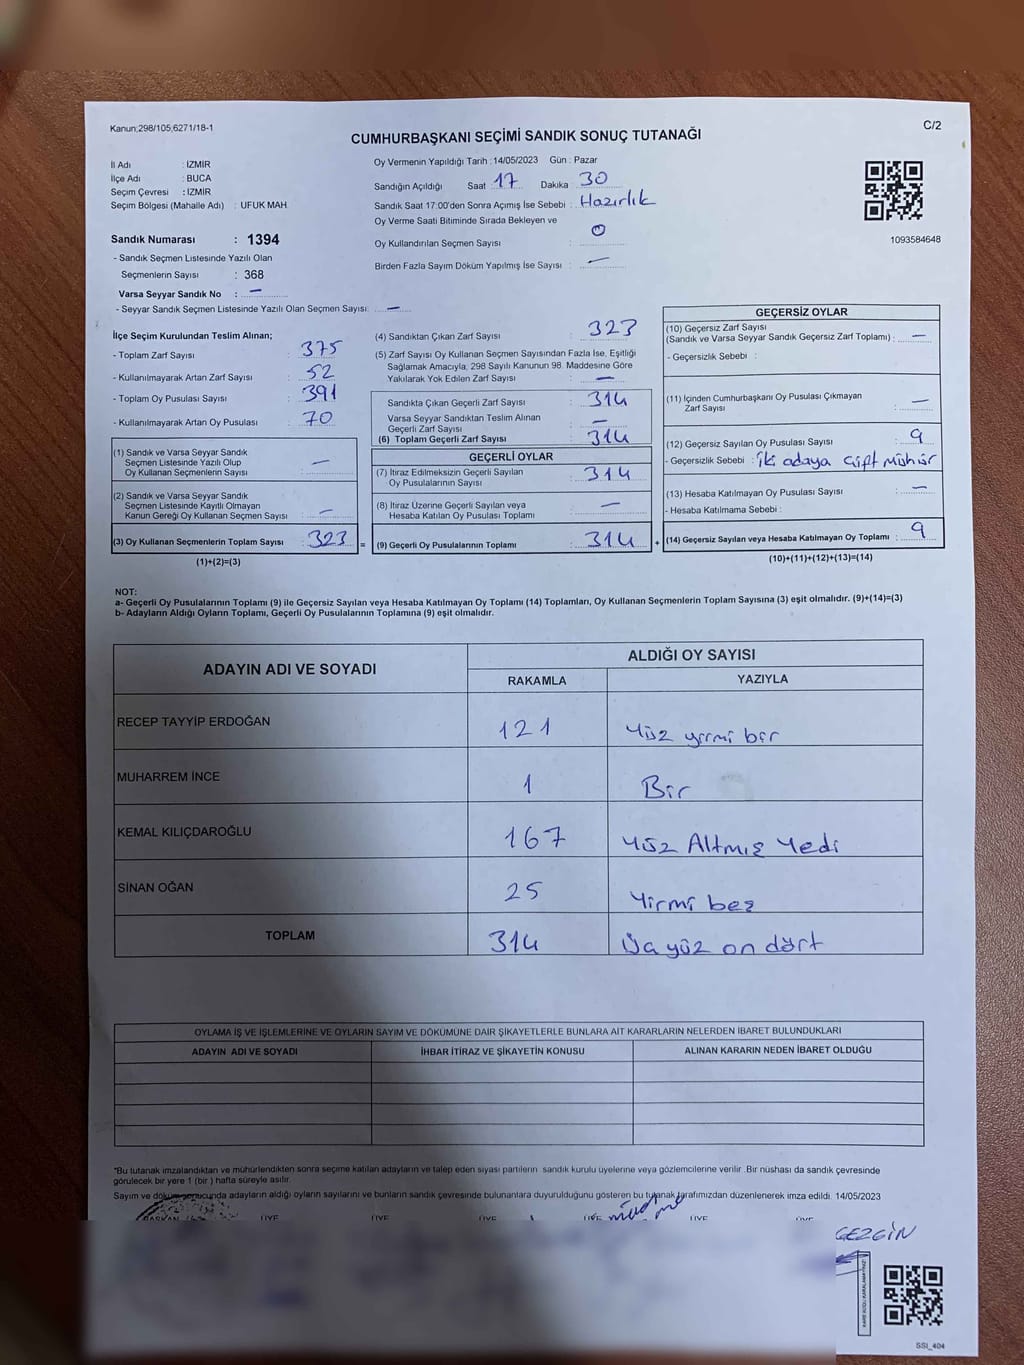 Kanun;298/105;6271/18-1
C/2
CUMHURBAŞKANI SEÇİMİ SANDIK SONUÇ TUTANAĞI
İl Adı : İZMİR
İlçe Adı : BUCA
Seçim Çevresi : İZMİR
Seçim Bölgesi (Mahalle Adı) : UFUK MAH.
Sandık Numarası : 1394
- Sandık Seçmen Listesinde Yazılı Olan
Seçmenlerin Sayısı : 368
Varsa Seyyar Sandık No : —
- Seyyar Sandık Seçmen Listesinde Yazılı Olan Seçmen Sayısı: —
Oy Vermenin Yapıldığı Tarih : 14/05/2023 Gün : Pazar
Sandığın Açıldığı Saat 17 Dakika 30
Sandık Saat 17:00'den Sonra Açımış İse Sebebi : Hazırlık
Oy Verme Saati Bitiminde Sırada Bekleyen ve
Oy Kullandırılan Seçmen Sayısı : 0
Birden Fazla Sayım Döküm Yapılmış İse Sayısı : —
1093584648
İlçe Seçim Kurulundan Teslim Alınan;
- Toplam Zarf Sayısı : 375
- Kullanılmayarak Artan Zarf Sayısı : 52
- Toplam Oy Pusulası Sayısı : 391
- Kullanılmayarak Artan Oy Pusulası : 70
(1) Sandık ve Varsa Seyyar Sandık
Seçmen Listesinde Yazılı Olup
Oy Kullanan Seçmenlerin Sayısı : —
(2) Sandık ve Varsa Seyyar Sandık
Seçmen Listesinde Kayıtlı Olmayan
Kanun Gereği Oy Kullanan Seçmen Sayısı : —
(3) Oy Kullanan Seçmenlerin Toplam Sayısı : 323 =
(1)+(2)=(3)
(4) Sandıktan Çıkan Zarf Sayısı : 323
(5) Zarf Sayısı Oy Kullanan Seçmen Sayısından Fazla İse, Eşitliği
Sağlamak Amacıyla, 298 Sayılı Kanunun 98. Maddesine Göre
Yakılarak Yok Edilen Zarf Sayısı : —
Sandıkta Çıkan Geçerli Zarf Sayısı : 314
Varsa Seyyar Sandıktan Teslim Alınan
Geçerli Zarf Sayısı : —
(6) Toplam Geçerli Zarf Sayısı : 314
GEÇERLİ OYLAR
(7) İtiraz Edilmeksizin Geçerli Sayılan
Oy Pusulalarının Sayısı : 314
(8) İtiraz Üzerine Geçerli Sayılan veya
Hesaba Katılan Oy Pusulası Toplamı : —
(9) Geçerli Oy Pusulalarının Toplamı : 314 +
GEÇERSİZ OYLAR
(10) Geçersiz Zarf Sayısı
(Sandık ve Varsa Seyyar Sandık Geçersiz Zarf Toplamı) : —
- Geçersizlik Sebebi :
(11) İçinden Cumhurbaşkanı Oy Pusulası Çıkmayan
Zarf Sayısı : —
(12) Geçersiz Sayılan Oy Pusulası Sayısı : 9
- Geçersizlik Sebebi : iki adaya çift mühür
(13) Hesaba Katılmayan Oy Pusulası Sayısı : —
- Hesaba Katılmama Sebebi :
(14) Geçersiz Sayılan veya Hesaba Katılmayan Oy Toplamı : 9
(10)+(11)+(12)+(13)=(14)
NOT:
a- Geçerli Oy Pusulalarının Toplamı (9) ile Geçersiz Sayılan veya Hesaba Katılmayan Oy Toplamı (14) Toplamları, Oy Kullanan Seçmenlerin Toplam Sayısına (3) eşit olmalıdır. (9)+(14)=(3)
b- Adayların Aldığı Oyların Toplamı, Geçerli Oy Pusulalarının Toplamına (9) eşit olmalıdır.
ADAYIN ADI VE SOYADI
ALDIĞI OY SAYISI
RAKAMLA YAZIYLA
RECEP TAYYİP ERDOĞAN 121 Yüz yirmi bir
MUHARREM İNCE 1 Bir
KEMAL KILIÇDAROĞLU 167 Yüz Altmış Yedi
SİNAN OĞAN 25 Yirmi beş
TOPLAM 314 Üç yüz on dört
OYLAMA İŞ VE İŞLEMLERİNE VE OYLARIN SAYIM VE DÖKÜMÜNE DAİR ŞİKAYETLERLE BUNLARA AİT KARARLARIN NELERDEN İBARET BULUNDUKLARI
ADAYIN ADI VE SOYADI İHBAR İTİRAZ VE ŞİKAYETİN KONUSU ALINAN KARARIN NEDEN İBARET OLDUĞU
*Bu tutanak imzalandıktan ve mühürlendikten sonra seçime katılan adayların ve talep eden siyasi partilerin sandık kurulu üyelerine veya gözlemcilerine verilir. Bir nüshası da sandık çevresinde
görülecek bir yere 1 (bir ) hafta süreyle asılır.
Sayım ve döküm sonucunda adayların aldığı oyların sayılarını ve bunların sandık çevresinde bulunanlara duyurulduğunu gösteren bu tutanak tarafımızdan düzenlenerek imza edildi. 14/05/2023
BAŞKAN ÜYE ÜYE ÜYE ÜYE ÜYE ÜYE
GEZGİN
SSI_404